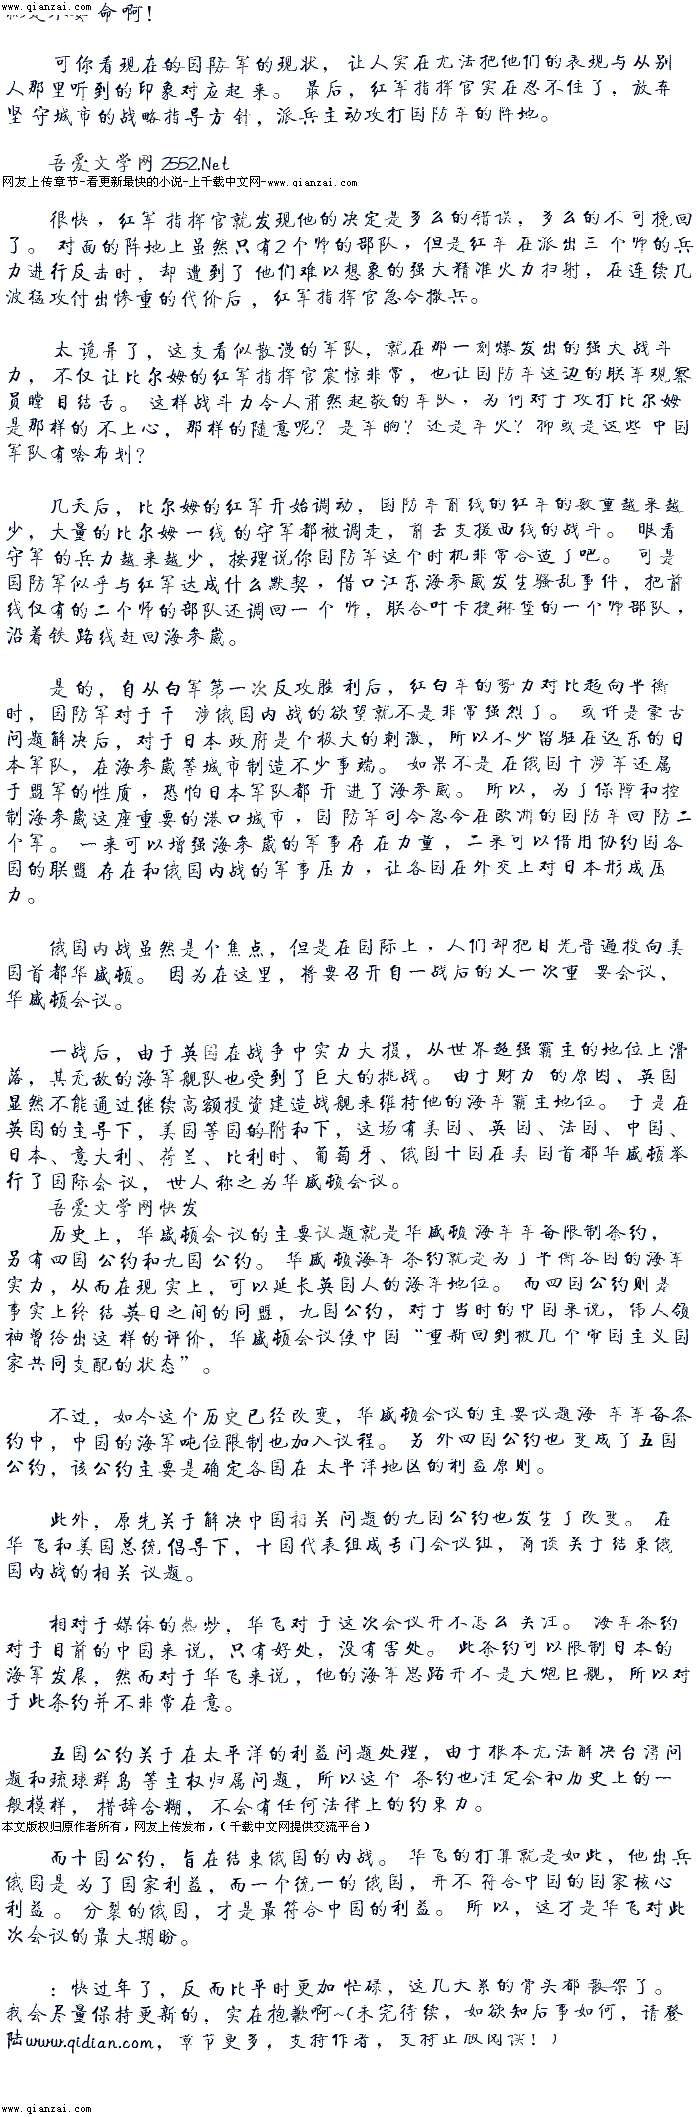 www.qianzai.com
命啊！
可你看现在的国防军的现状，让人实在无法把他们的表现与从别
人那里听到的印象对应起来。最后，红军指挥官实在忍不住了，放弃
坚守城市的战略指导方针，派兵主动攻打国防军的阵地。
吾爱文学网 2552.Net
网友上传章节-看更新最快的小说-上千载中文网-www.qianzai.com
很快，红军指挥官就发现他的决定是多么的错误，多么的不可挽回
了。对面的阵地上虽然只有2个师的部队，但是红军在派出三个师的兵
力进行反击时，却遭到了他们难以想象的强大精准火力扫射，在连续几
波猛攻付出惨重的代价后，红军指挥官急令撤兵。
太诡异了，这支看似散漫的军队，就在那一刻爆发出的强大战斗
力，不仅让比尔姆的红军指挥官震惊非常，也让国防军这边的联军观察
员瞠目结舌。这样战斗力令人肃然起敬的军队，为何对于攻打比尔姆
是那样的不上心，那样的随意呢？是军饷？还是军火？抑或是这些中国
军队有啥布划？
几天后，比尔姆的红军开始调动，国防军前线的红军的数量越来越
少，大量的比尔姆一线的守军都被调走，前去支援西线的战斗。眼看
守军的兵力越来越少，按理说你国防军这个时机非常合适了吧。可是
国防军似乎与红军达成什么默契，借口江东海参崴发生骚乱事件，把前
线仅有的二个师的部队还调回一个师，联合叶卡捷琳堡的一个师部队，
沿着铁路线赶回海参崴。
是的，自从白军第一次反攻胜利后，红白军的势力对比趋向平衡
时，国防军对于干涉俄国内战的欲望就不是非常强烈了。或许是蒙古
问题解决后，对于日本政府是个极大的刺激，所以不少留驻在远东的日
本军队，在海参崴等城市制造不少事端。如果不是在俄国干涉军还属
于盟军的性质，恐怕日本军队都开进了海参崴。所以，为了保障和控
制海参崴这座重要的港口城市，国防军司令急令在欧洲的国防军回防二
个军。一来可以增强海参崴的军事存在力量，二来可以借用协约国各
国的联盟存在和俄国内战的军事压力，让各国在外交上对日本形成压
力。
俄国内战虽然是个焦点，但是在国际上，人们却把目光普遍投向美
国首都华盛顿。因为在这里，将要召开自一战后的又一次重要会议、
华盛顿会议。
一战后，由于英国在战争中实力大损，从世界超强霸主的地位上滑
落，其无敌的海军舰队也受到了巨大的挑战。由于财力的原因、英国
显然不能通过继续高额投资建造战舰来维持他的海军霸主地位。于是在
英国的主导下，美国等国的附和下，这场有美国、英国、法国、中国、
日本、意大利、荷兰、比利时、葡萄牙、俄国十国在美国首都华盛顿举
行了国际会议，世人称之为华盛顿会议。
吾爱文学网快发
历史上，华盛顿会议的主要议题就是华盛顿海军军备限制条约，
另有四国公约和九国公约。华盛顿海军条约就是为了平衡各国的海军
实力，从而在现实上，可以延长英国人的海军地位。而四国公约则是
事实上终结英日之间的同盟，九国公约，对于当时的中国来说，伟人领
袖曾给出这样的评价，华盛顿会议使中国“重新回到被几个帝国主义国
家共同支配的状态”。
不过，如今这个历史已经改变，华盛顿会议的主要议题海军军备条
约中，中国的海军吨位限制也加入议程。另外四国公约也变成了五国
公约，该公约主要是确定各国在太平洋地区的利益原则。
此外，原先关于解决中国相关问题的九国公约也发生了改变。在
华飞和美国总统倡导下，十国代表组成专门会议组，商谈关于结束俄
国内战的相关议题。
相对于媒体的热炒，华飞对于这次会议并不怎么关注。海军条约
对于目前的中国来说，只有好处，没有害处。此条约可以限制日本的
海军发展，然而对于华飞来说，他的海军思路并不是大炮巨舰，所以对
于此条约并不非常在意。
五国公约关于在太平洋的利益问题处理，由于根本无法解决台湾问
题和琉球群岛等主权归属问题，所以这个条约也注定会和历史上的一
般模样，措辞含糊，不会有任何法律上的约束力。
本文版权归原作者所有，网友上传发布，（千载中文网提供交流平台）
而十国公约，旨在结束俄国的内战。华飞的打算就是如此，他出兵
俄国是为了国家利益，而一个统一的俄国，并不符合中国的国家核心
利益。分裂的俄国，才是最符合中国的利益。所以，这才是华飞对此
次会议的最大期盼。
：快过年了，反而比平时更加忙碌，这几天累的骨头都散架了。
我会尽量保持更新的，实在抱歉啊~(未完待续，如欲知后事如何，请登
陆www.qidian.com，章节更多，支持作者，支持正版阅读！)
www.qianzai.com